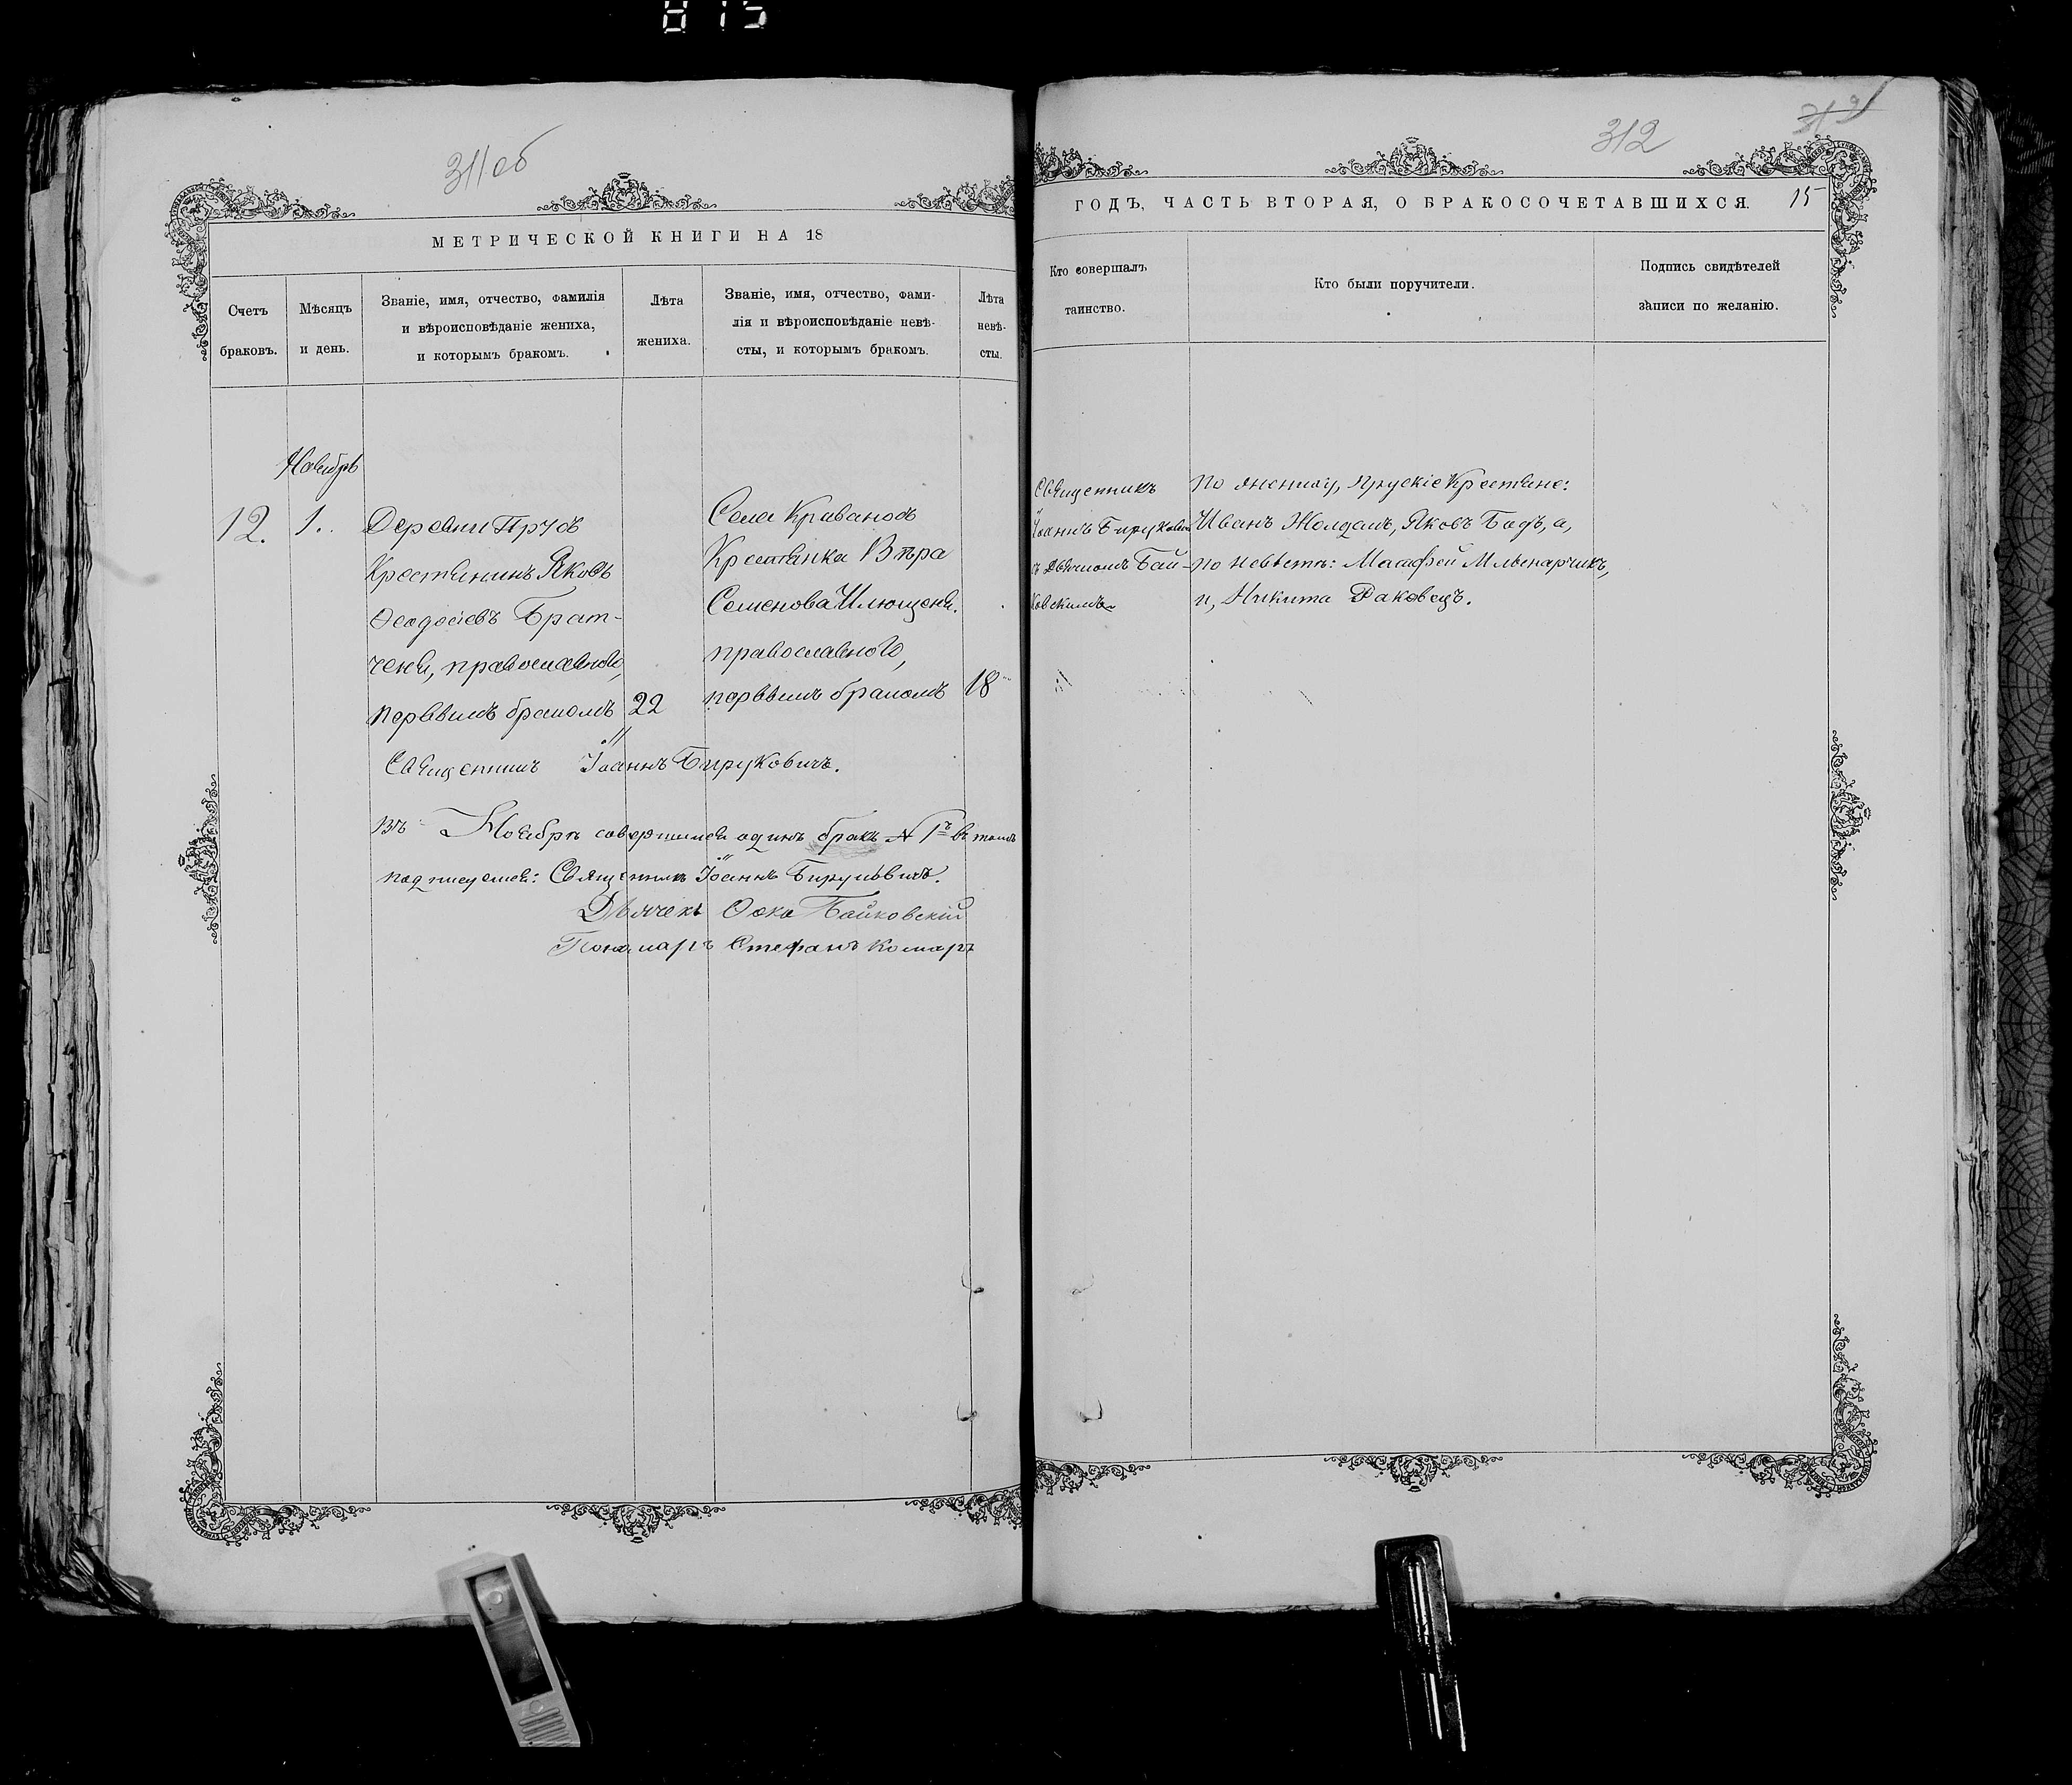 815
311 об
МЕТРИЧЕСКОЙ КНИГИ НА 18
Счетъ
браковъ.
Мѣсяцъ
и день.
Званіе, имя, отчество, фамилія
и вѣроисповѣданіе жениха,
и которымъ бракомъ.
Лѣта
жениха.
Званіе, имя, отчество, фами-
лія и вѣроисповѣданіе невѣ-
сты, и которымъ бракомъ.
Лѣта
невѣ-
сты.
Ноябрь
12.
1.
Деревни Прусъ
Крестьянинъ Яковъ
Ѳеодосіевъ Брат-
ченя, православного,
первымъ бракомъ
22
Села
Крестьянка Вѣра
Семенова Илющеня.
православного,
первымъ бракомъ
18
Священникъ Іоаннъ Бируковичъ.
Въ Ноябрѣ совершился одинъ бракъ № 1ъ въ томъ
подписуемся: Священникъ Іоаннъ Бируковичъ.
Дьячекъ Ѳока Байковскій
Пономаръ Стефанъ Комаръ
312
15
ГОДЪ, ЧАСТЬ ВТОРАЯ, О БРАКОСОЧЕТАВШИХСЯ.
Кто совершалъ
таинство.
Кто были поручители.
Подпись свидѣтелей
записи по желанію.
Священникъ
Іоаннъ Бируковичъ
съ Дьячкомъ Бай-
ковскимъ
По жениху, Прускіе Крестьяне:
Иванъ Жолдакъ, Яковъ Бадъ, а,
по невѣстѣ: Матфей Мльнарчикъ,
и, Никита Раковецъ.